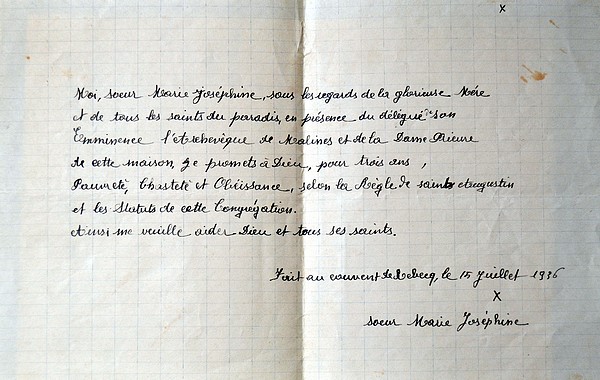 x
Moi, soeur Marie Joséphine, sous les regards de la glorieuse Mère
et de tous les saints du paradis, en présence du délégué de son
Emminence l'Archevêque de Malines et de la Dame Prieure
de cette maison, je promets à Dieu, pour trois ans,
Pauvreté, Chasteté et Obéissance, selon la Règle de saint Augustin
et les Statuts de cette Congrégation.
Ainsi me veuille aider Dieu et tous ses saints.
Fait au couvent de Rebecq, le 15 juillet 1936
x
soeur Marie Joséphine